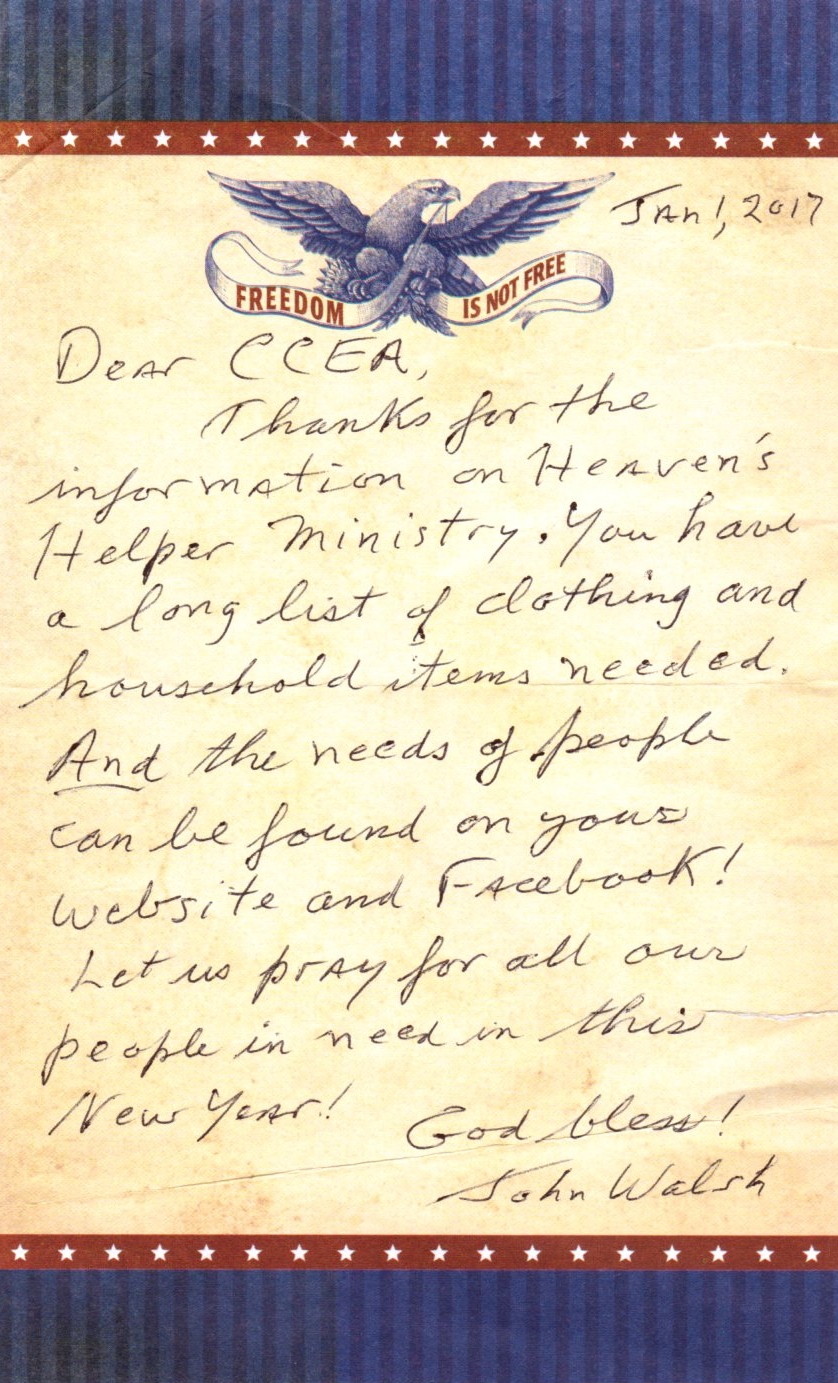 Jan 1, 2017
FREEDOM IS NOT FREE
Dear CCEA,
Thanks for the
information on Heaven's
Helper Ministry. You have
a long list of clothing and
household items needed.
And the needs of people
can be found on your
website and Facebook!
Let us pray for all our
people in need in this
New Year!
God bless!
John Walsh